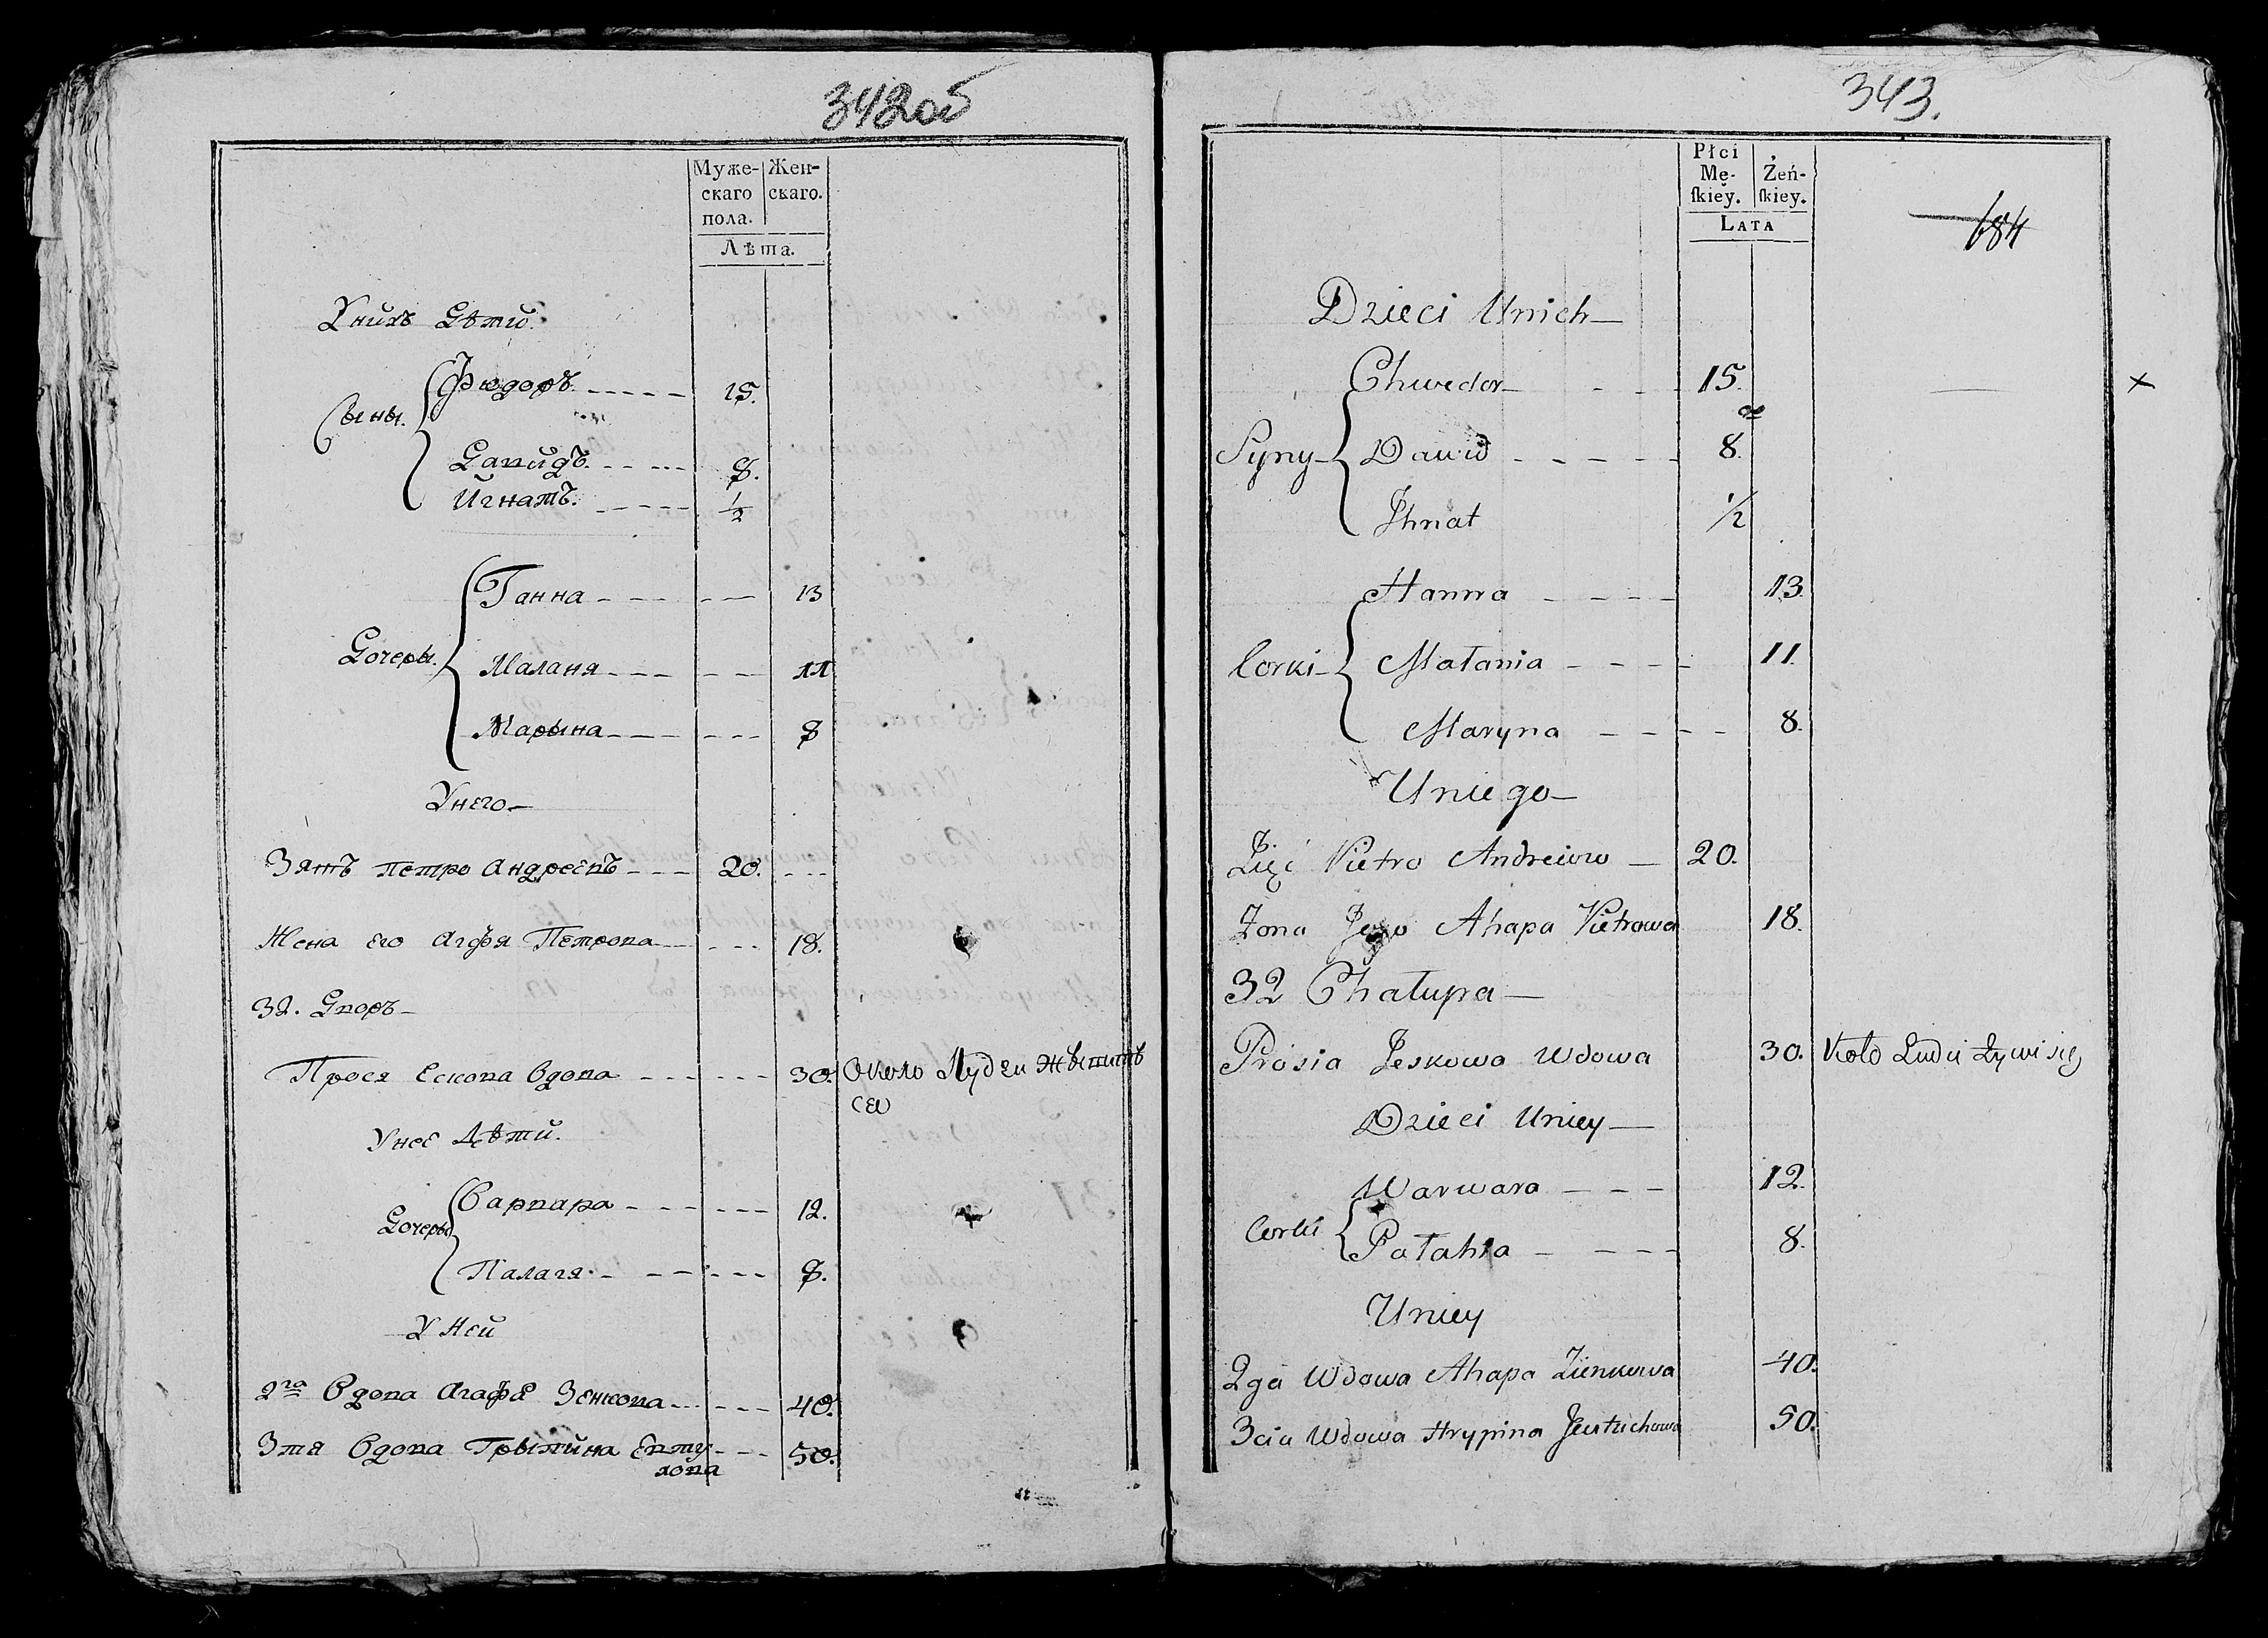 342об
Муже-
скаго
пола.
Жен-
скаго.
Лѣта.
У нихъ Дѣти.
Сыны.
Фюдоръ 15.
Давидъ 8.
Игнатъ. 1/2
Дочеры.
Ганна 13
Маланя 11
Марына 8
У него
Зять Петро Андреевъ 20.
Жена его Агафя Петрова 18.
32. Дворъ
Прося Ескова Вдова 30. Около Людзи жывить
ся
У нее Дѣти.
Дочеры
Варвара 12.
Палагя 8.
У Ней
2га Вдова Агафя Зенкова 40.
3тя Вдова Грыпина Евту
хова 50.
343.
Płci
Mę-
skiey.
Żeń-
skiey.
LATA
684
Dzieci Unich
Syny
Chwedor 15. x
Dawid 8.
Jhnat 1/2
Corki
Hanna 13.
Małania 11.
Maryna 8.
Uniego
Zięć Pietro Andreiow 20.
Zona Jego Ahapa Pietrowa 18.
32 Chałupa
Prosia Jeskowa Wdowa 30. Koło Ludzi Zywi się
Dzieci Uniey
Corki
Warwara 12.
Pałahia 8.
Uniey
2ga Wdowa Ahapa Zienkowa 40.
3cia Wdowa Hrypina Jeutuchowa 50.